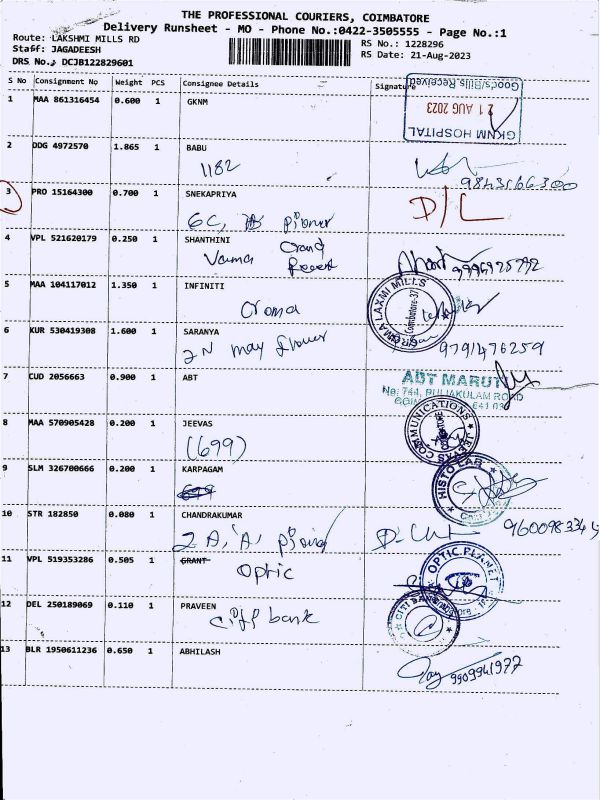 THE PROFESSIONAL COURIERS, COIMBATORE
Delivery Runsheet - MO - Phone No.:0422-3505555 - Page No.:1
Route: LAKSHMI MILLS RD
RS No.: 1228296
Staff: JAGADEESH
RS Date: 21-Aug-2023
DRS No.: DCJB122829601
S No Consignment No Weight PCS Consignee Details Signature
1 MAA 861316454 0.600 1 GKNM
Goods/Bills Received
21 AUG 2023
GKNM HOSPITAL
2 DDG 4972570 1.865 1 BABU
1182
3 PRO 15164300 0.700 1 SNEKAPRIYA
D/L
6C,
4 VPL 521620179 0.250 1 SHANTHINI
Grand
5 MAA 104117012 1.350 1 INFINITI
Croma
LAXMI MILLS
Coimbatore-37
6 KUR 530419308 1.600 1 SARANYA
2N may flower
9791476259
7 CUD 2056663 0.900 1 ABT
ABT MARUTI
No: 744, PULIAKULAM ROAD
8 MAA 570905428 0.200 1 JEEVAS
(699)
JEEVAS COMMUNICATIONS
9 SLM 326700666 0.200 1 KARPAGAM
699
HISTO LAB
10 STR 182850 0.080 1 CHANDRAKUMAR
2 A, 'A'
11 VPL 519353286 0.505 1 GRANT
Optic
OPTIC PLANET
12 DEL 250189069 0.110 1 PRAVEEN
bank
CITI BANK
13 BLR 1950611236 0.650 1 ABHILASH
9909941977